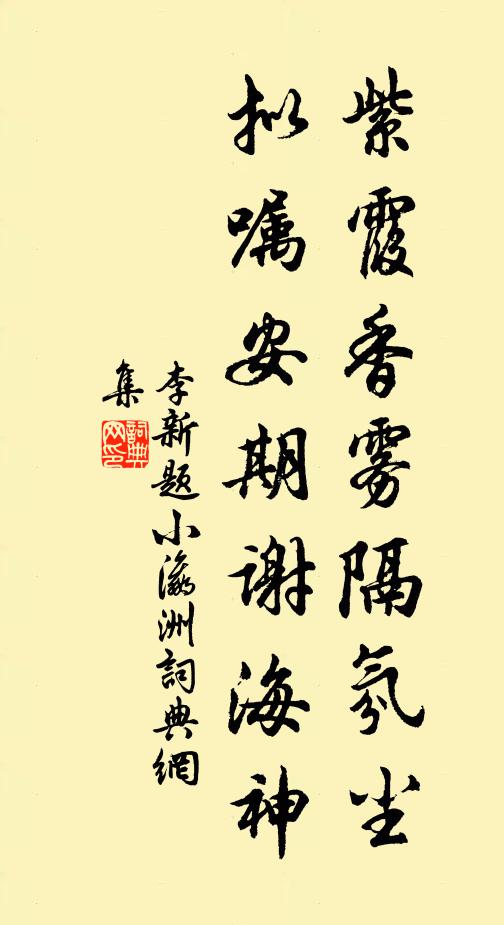 紫霞香雾隔氛尘
拟嘱安期谢海神
李新题小瀛洲词典網
集
詞典
网印